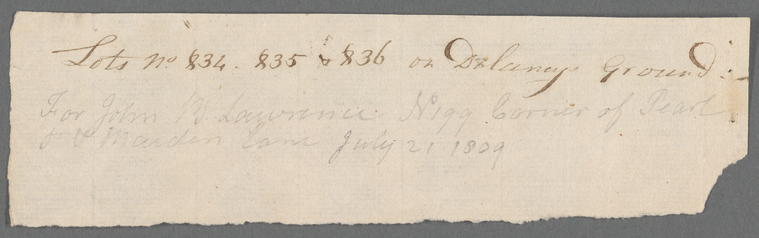 Lots No 834. 835 & 836 on Delancys Ground:
For John B. Lawrence No 99 Corner of Pearl
& Maiden Lane July 21 1809